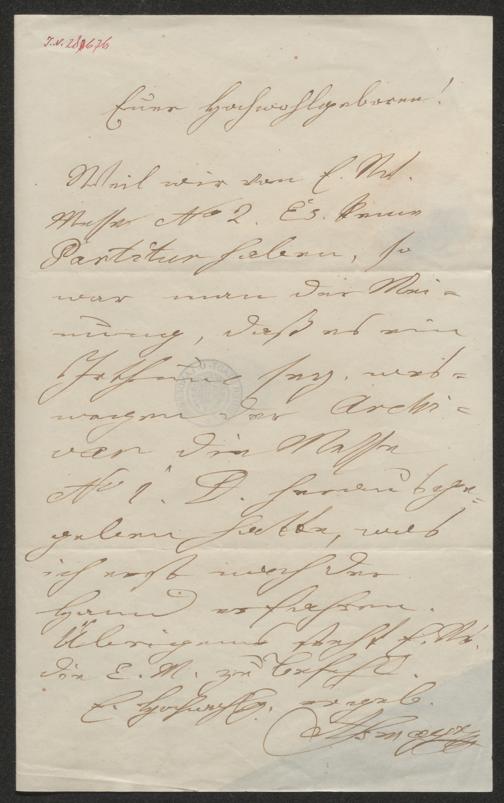 I.N. 28676
Euer Hochwohlgeboren!
Weil wir von E. M.
Messe No 2. Es. keine
Partitur haben, so
war man der Mei=
nung, daß es ein
Irthum sey, wes=
wegen der Archi=
var die Messe
No 1. D. herausge=
geben hatte, was
ich erst nach der
Hand erfahren.
Übrigens steht
die E. M. zu Befehl.
E. Hochwohlg. ergeb.